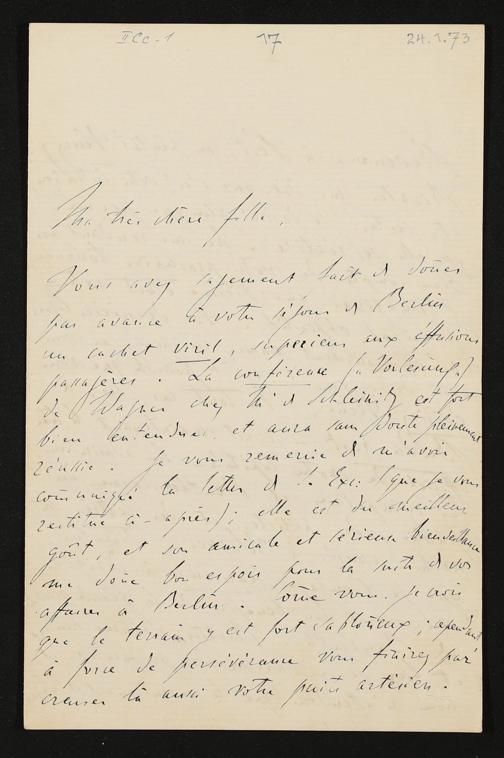 IICc-1 17 24.1.73
Ma très chère fille,
Vous avez sagement fait de dôner
par avance à votre séjour de Berlin
un cachet viril, supérieur aux effusions
passagères. La conférence (« Vorlesung »)
de Wagner chez Me de Schleinitz est fort
bien entendue, et aura sans doute pleinement
réussie. Je vous remercie de m'avoir
communiqué la lettre de S. Exc: (que je vous
restitue ci-après); elle est du meilleur
goût, et son amicale et sérieuse bienveillance
me dône bon espoir pour la suite de vos
affaires à Berlin. Côme vous, je crois
que le terrain y est fort sablonneux; cependant
à force de persévérance vous finirez par
creuser là aussi votre puits artésien.